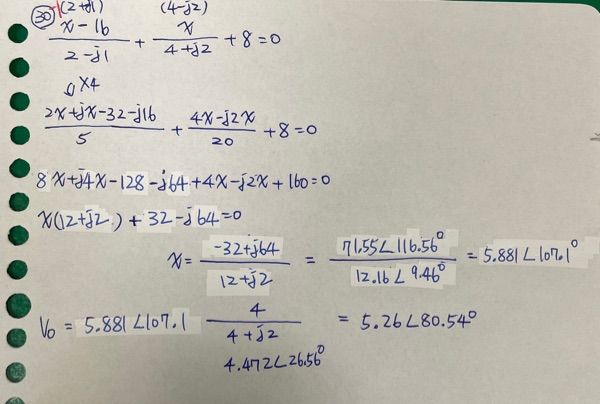 30 (2+j1) (4-j2)
(x-16)/(2-j1) + x/(4+j2) + 8 = 0
↓ x4
(2x+jx-32-j16)/5 + (4x-j2x)/20 + 8 = 0
8x+j4x-128-j64+4x-j2x+160=0
x(12+j2)+32-j64=0
x = (-32+j64)/(12+j2) = (71.55∠116.56°)/(12.16∠9.46°) = 5.881∠107.1°
V₀ = 5.881∠107.1 4/(4+j2) = 5.26∠80.54°
4.472∠26.56°